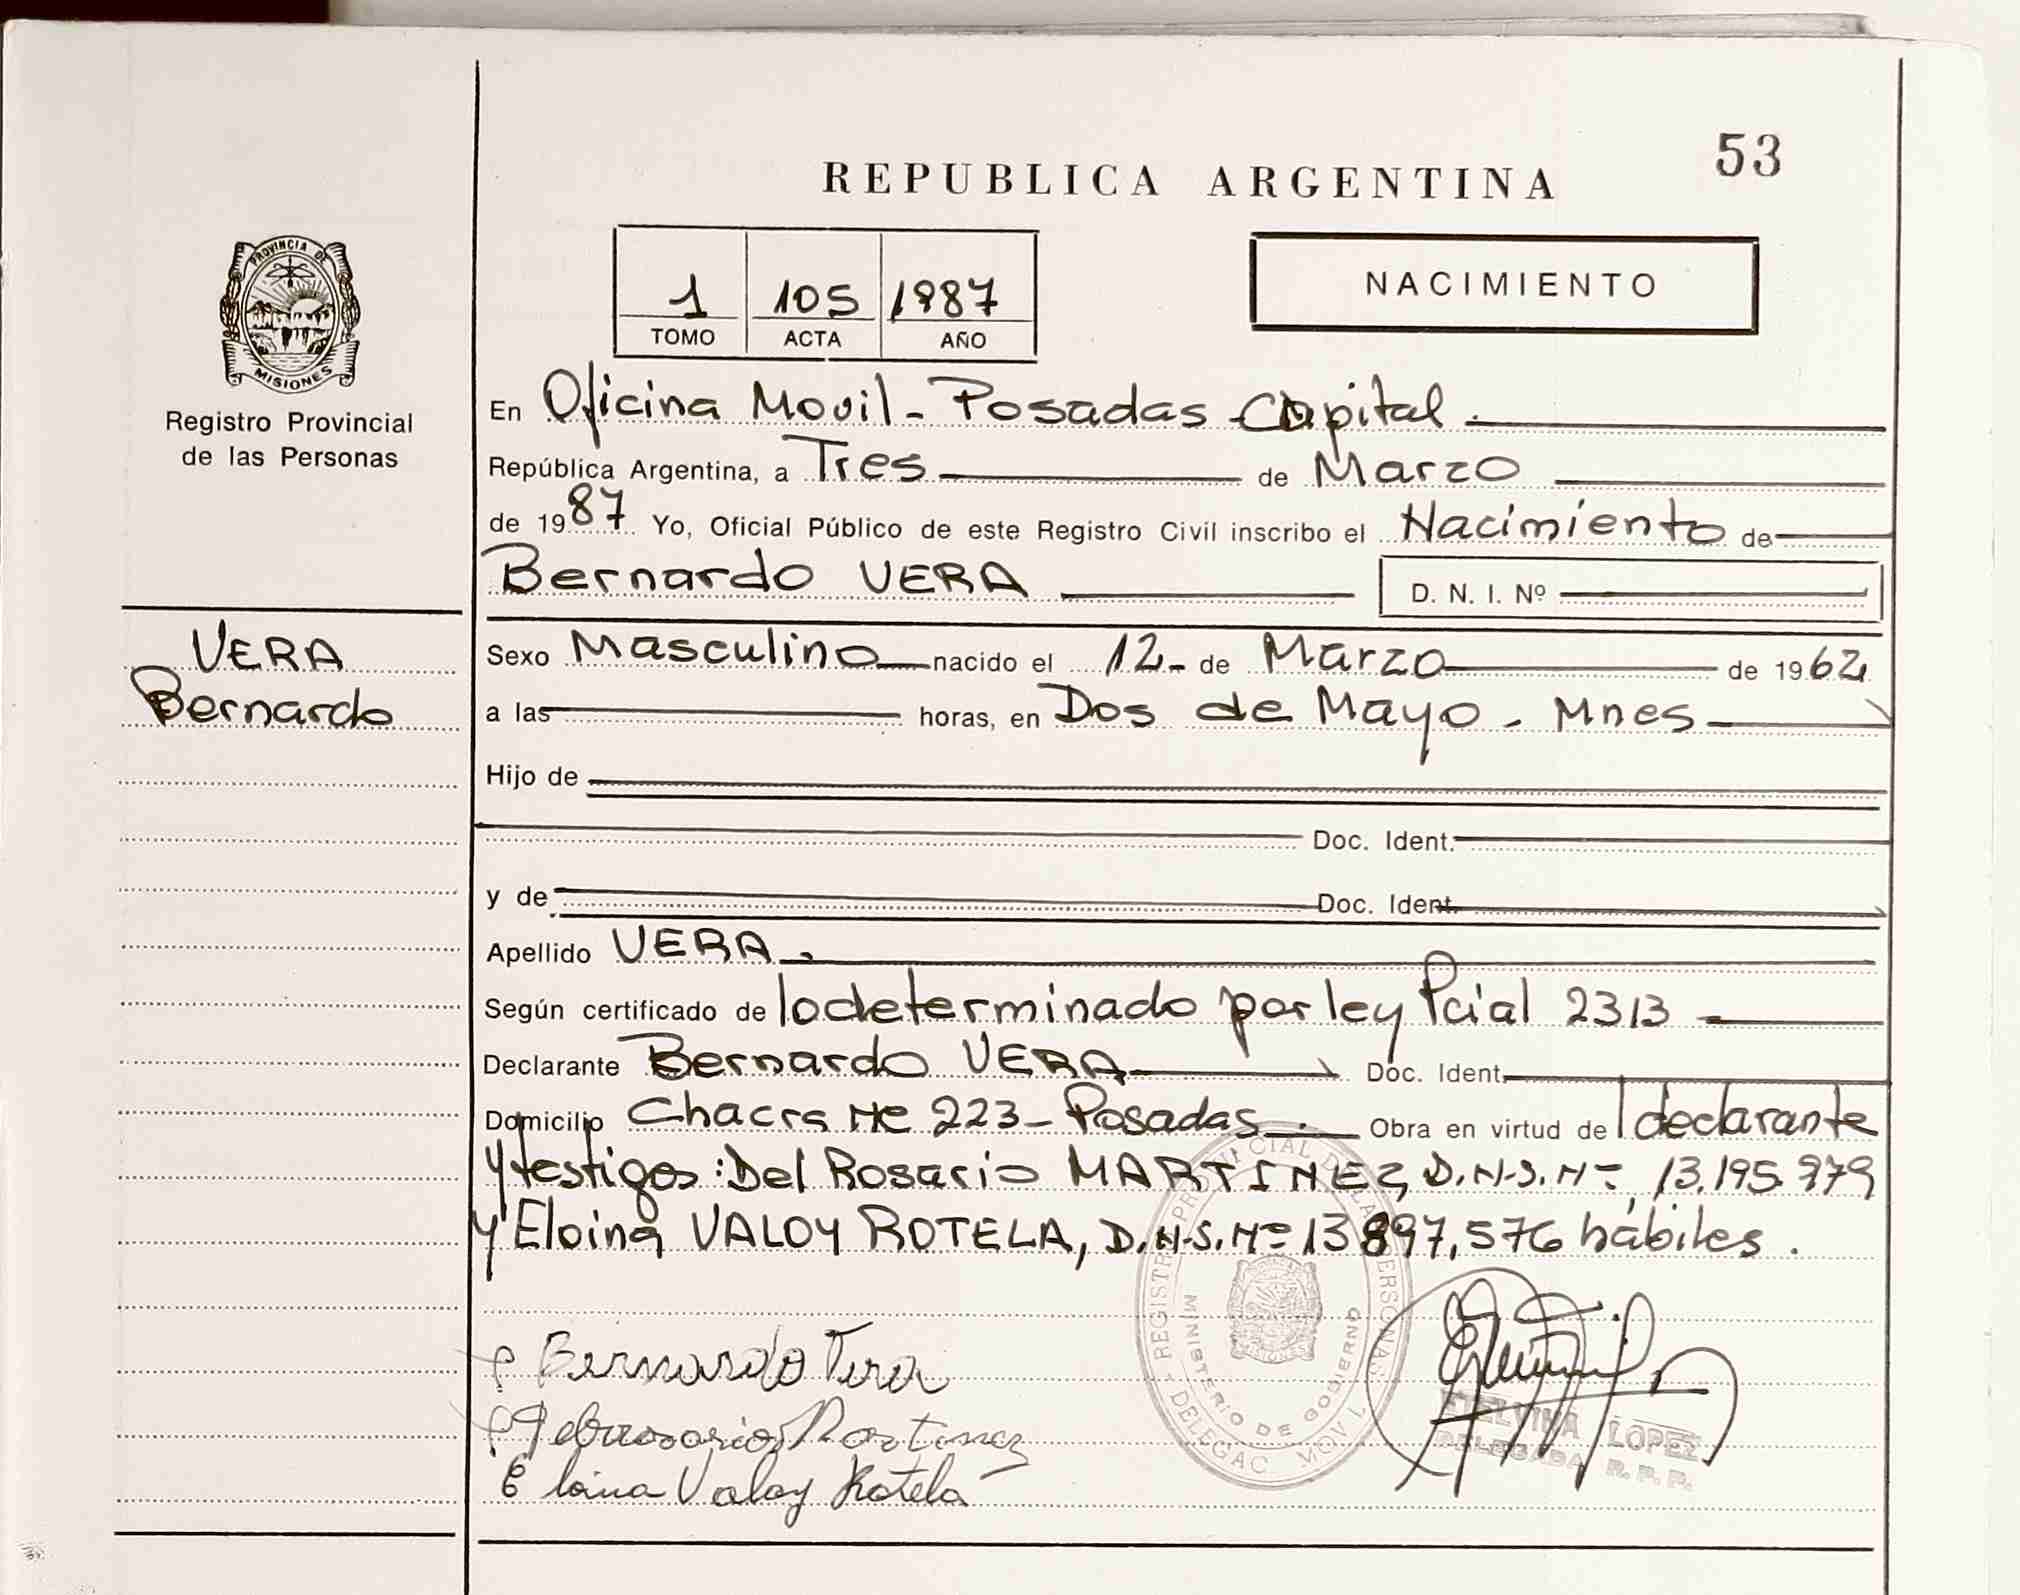 53
REPUBLICA ARGENTINA
1 105 1987
TOMO ACTA AÑO
NACIMIENTO
PROVINCIA DE
MISIONES
Registro Provincial
de las Personas
En Oficina Movil - Posadas Capital.
República Argentina, a Tres de Marzo
de 1987 Yo, Oficial Público de este Registro Civil inscribo el Nacimiento de
Bernardo VERA D. N. I. Nº
VERA
Bernardo
Sexo Masculino nacido el 12 - de Marzo de 1962
a las horas, en Dos de Mayo - Mnes
Hijo de
Doc. Ident.
y de Doc. Ident.
Apellido VERA
Según certificado de lo determinado por ley Pcial 2313
Declarante Bernardo VERA Doc. Ident.
Domicilio Chacra Nº 223 - Posadas. Obra en virtud de l declarante
y testigos: Del Rosario MARTINEZ, D.N.I. Nº 13.195.979
y Eloina VALOY ROTELA, D.N.I. Nº 13.897.576 hábiles.
REGISTRO PROVINCIAL DE LAS PERSONAS
MINISTERIO DE GOBIERNO
MISIONES
DELEGAC. MOVIL
Bernardo Vera
Martinez
Eloina Valoy Rotela
ETELVINA LOPEZ
DELEGADA R. P. P.